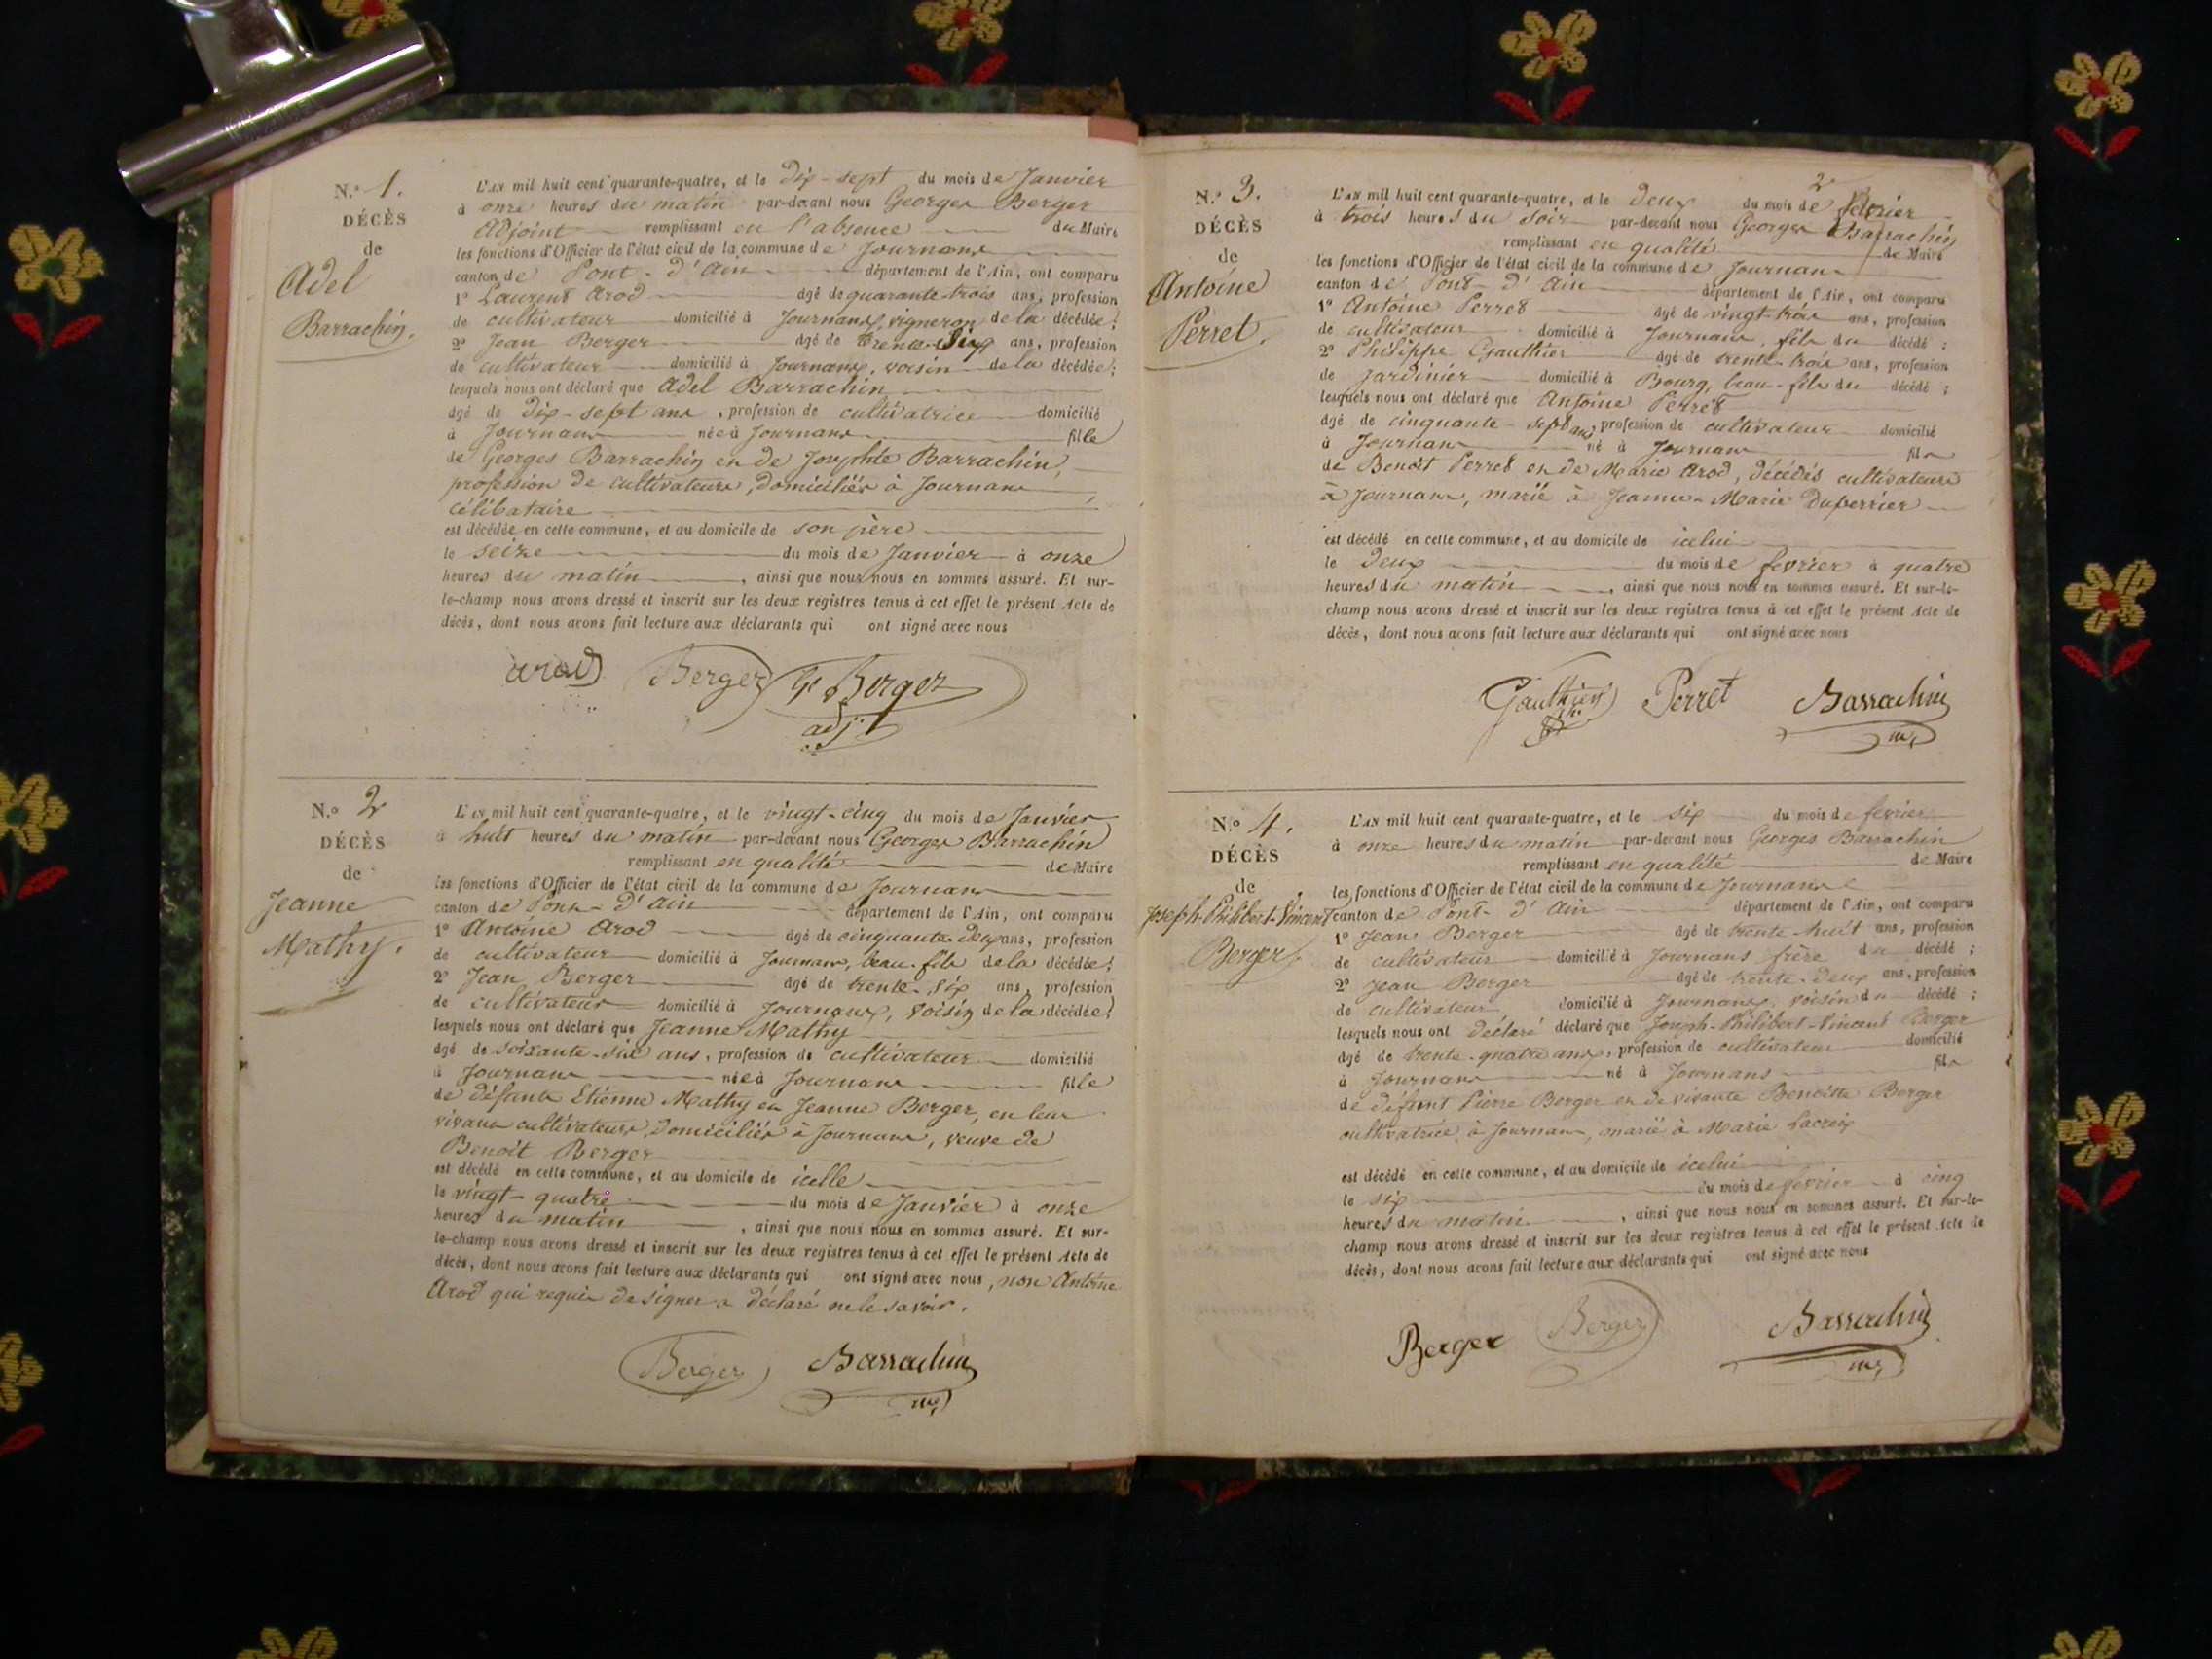 N.o 1.
DÉCÈS
de
Adel
Barrachin.
L'AN mil huit cent quarante-quatre, et le Dix-sept du mois de Janvier
à onze heures du matin par-devant nous Georges Berger
Adjoint remplissant en l'absence du Maire
les fonctions d'Officier de l'état civil de la commune de Journans
canton de Pont-d'Ain département de l'Ain, ont comparu
1º Laurent Arod âgé de quarante-trois ans, profession
de cultivateur domicilié à Journans, vigneron de la décédée;
2º Jean Berger âgé de trente-six ans, profession
de cultivateur domicilié à Journans, voisin de la décédée;
lesquels nous ont déclaré que Adel Barrachin
âgé de Dix-sept ans, profession de cultivatrice domicilié
à Journans née à Journans fille
de Georges Barrachin et de Josephte Barrachin,
profession de cultivateurs, domiciliés à Journans,
célibataire
est décédée en cette commune, et au domicile de son père
le seize du mois de Janvier à onze
heures du matin, ainsi que nous nous en sommes assuré. Et sur-
le-champ nous avons dressé et inscrit sur les deux registres tenus à cet effet le présent Acte de
décès, dont nous avons fait lecture aux déclarants qui ont signé avec nous
arod Berger Ge Berger
adj.t
N.o 2
DÉCÈS
de
Jeanne
Mathy.
L'AN mil huit cent quarante-quatre, et le vingt-cinq du mois de Janvier
à huit heures du matin par-devant nous Georges Barrachin
remplissant en qualité de Maire
les fonctions d'Officier de l'état civil de la commune de Journans
canton de Pont-d'Ain département de l'Ain, ont comparu
1º Antoine Arod âgé de cinquante-deux ans, profession
de cultivateur domicilié à Journans, beau-fils de la décédée;
2º Jean Berger âgé de trente-six ans, profession
de cultivateur domicilié à Journans, voisin de la décédée;
lesquels nous ont déclaré que Jeanne Mathy
âgé de soixante-six ans, profession de cultivateur domicilié
à Journans née à Journans fille
de défunts Etienne Mathy et Jeanne Berger, en leur
vivant cultivateurs, domiciliés à Journans, veuve de
Benoit Berger
est décédé en cette commune, et au domicile de icelle
le vingt-quatre du mois de Janvier à onze
heures du matin, ainsi que nous nous en sommes assuré. Et sur-
le-champ nous avons dressé et inscrit sur les deux registres tenus à cet effet le présent Acte de
décès, dont nous avons fait lecture aux déclarants qui ont signé avec nous, non Antoine
Arod qui requis de signer a déclaré ne le savoir.
Berger Barrachin
me
2
N.o 3.
DÉCÈS
de
Antoine
Perret.
L'AN mil huit cent quarante-quatre, et le Deux du mois de février
à trois heures du soir par-devant nous Georges Barrachin
remplissant en qualité de Maire
les fonctions d'Officier de l'état civil de la commune de Journans
canton de Pont-d'Ain département de l'Ain, ont comparu
1º Antoine Perret âgé de vingt-trois ans, profession
de cultivateur domicilié à Journans, fils du décédé;
2º Philippe Gauthier âgé de trente-trois ans, profession
de jardinier domicilié à Bourg, beau-fils du décédé;
lesquels nous ont déclaré que Antoine Perret
âgé de cinquante-sept ans, profession de cultivateur domicilié
à Journans né à Journans fils
de Benoit Perret et de Marie Arod, décédés cultivateurs
à Journans, marié à Jeanne-Marie Duperrier
est décédé en cette commune, et au domicile de icelui
le Deux du mois de février à quatre
heures du matin, ainsi que nous nous en sommes assuré. Et sur-le-
champ nous avons dressé et inscrit sur les deux registres tenus à cet effet le présent Acte de
décès, dont nous avons fait lecture aux déclarants qui ont signé avec nous
Gauthier Perret Barrachin
me
N.o 4.
DÉCÈS
de
Joseph-Philibert-Vincent
Berger
L'AN mil huit cent quarante-quatre, et le six du mois de fevrier
à onze heures du matin par-devant nous Georges Barrachin
remplissant en qualité de Maire
les fonctions d'Officier de l'état civil de la commune de Journans
canton de Pont-d'Ain département de l'Ain, ont comparu
1º Jean Berger âgé de trente-huit ans, profession
de cultivateur domicilié à Journans frère du décédé;
2º Jean Berger âgé de trente-deux ans, profession
de cultivateur domicilié à Journans, voisin du décédé;
lesquels nous ont déclaré déclaré que Joseph-Philibert-Vincent Berger
âgé de trente-quatre ans, profession de cultivateur domicilié
à Journans né à Journans fils
de défunt Pierre Berger et de vivante Benoitte Berger
cultivatrice à Journans, marié à Marie Lacroix
est décédé en cette commune, et au domicile de icelui
le six du mois de février à cinq
heures du matin, ainsi que nous nous en sommes assuré. Et sur-le-
champ nous avons dressé et inscrit sur les deux registres tenus à cet effet le présent Acte de
décès, dont nous avons fait lecture aux déclarants qui ont signé avec nous
Berger Berger Barrachin
me